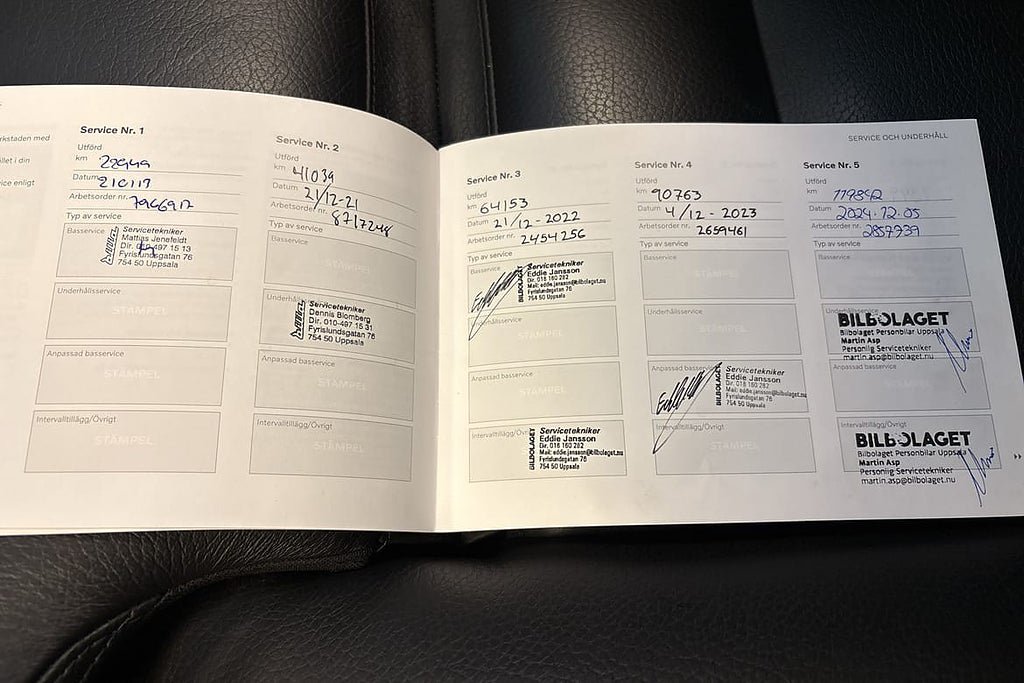 rkstaden med
illet i din
vice enligt
Service Nr. 1
Utförd
km
Datum 210119
Arbetsorder nr. 7966917
Typ av service
Basservice
Servicetekniker
Mattias Jenefeldt
Dir. 010-497 15 13
Fyrislundsgatan 76
754 50 Uppsala
Underhållsservice
STÄMPEL
Anpassad basservice
STÄMPEL
Intervalltillägg/Övrigt
STÄMPEL
Service Nr. 2
Utförd
km 41039
Datum 21/12-21
Arbetsorder nr. 8717248
Typ av service
Basservice
STÄMPEL
Underhålls
Servicetekniker
Dennis Blomberg
Dir. 010-497 15 31
Fyrislundsgatan 76
754 50 Uppsala
Anpassad basservice
STÄMPEL
Intervalltillägg/Övrigt
STÄMPEL
Service Nr. 3
Utförd
km 64153
Datum 21/12-2022
Arbetsorder nr. 2454256
Typ av service
Basservice
BILBOLAGET
Servicetekniker
Eddie Jansson
Dir. 018 160 282
Mail: eddie.jansson@bilbolaget.nu
Fyrislundsgatan 76
754 50 Uppsala
Underhållsservice
STÄMPEL
Anpassad basservice
STÄMPEL
Intervalltillägg/Övrigt
BILBOLAGET
Servicetekniker
Eddie Jansson
Dir. 018 160 282
Mail: eddie.jansson@bilbolaget.nu
Fyrislundsgatan 76
754 50 Uppsala
Service Nr. 4
Utförd
km 90763
Datum 4/12-2023
Arbetsorder nr. 2659461
Typ av service
Basservice
STÄMPEL
Underhållsservice
STÄMPEL
Anpassad basservice
BILBOLAGET
Servicetekniker
Eddie Jansson
Dir. 018 160 282
Mail: eddie.jansson@bilbolaget.nu
Fyrislundsgatan 76
754 50 Uppsala
Intervalltillägg/Övrigt
STÄMPEL
SERVICE OCH UNDERHÅLL
Service Nr. 5
Utförd
km 119842
Datum 2024-12-05
Arbetsorder nr. 2857739
Typ av service
Basservice
STÄMPEL
Underhållsservice
BILBOLAGET
Bilbolaget Personbilar Uppsala
Martin Asp
Personlig Servicetekniker
martin.asp@bilbolaget.nu
Anpassad basservice
STÄMPEL
Intervalltillägg/Övrigt
BILBOLAGET
Bilbolaget Personbilar Uppsala
Martin Asp
Personlig Servicetekniker
martin.asp@bilbolaget.nu